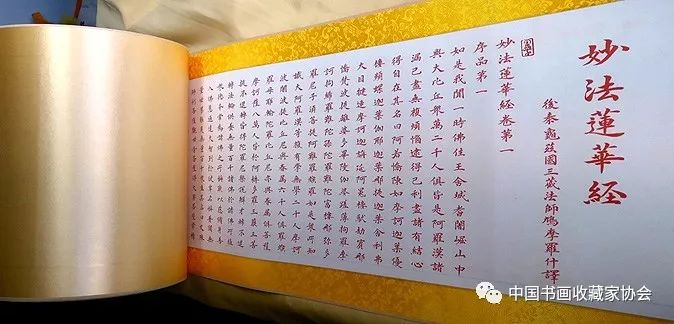 妙法蓮華經
後秦龜茲國三藏法師鳩摩羅什譯
妙法蓮華經卷第一
序品第一
如是我聞一時佛住王舍城耆闍崛山中
與大比丘眾萬二千人俱皆是阿羅漢諸
漏已盡無復煩惱逮得己利盡諸有結心
得自在其名曰阿若憍陳如摩訶迦葉優
樓頻螺迦葉伽耶迦葉那提迦葉舍利弗
大目揵連摩訶迦旃延阿㝹樓馱劫賓那
憍梵波提離婆多畢陵伽婆蹉薄拘羅摩
訶拘絺羅難陀孫陀羅難陀富樓那彌多
羅尼子須菩提阿難羅睺羅如是眾所知
識大阿羅漢等復有學無學二千人摩訶
波闍波提比丘尼與眷屬六千人俱羅睺
羅母耶輸陀羅比丘尼亦與眷屬俱菩薩
摩訶薩八萬人皆於阿耨多羅三藐三菩
中国书画收藏家协会